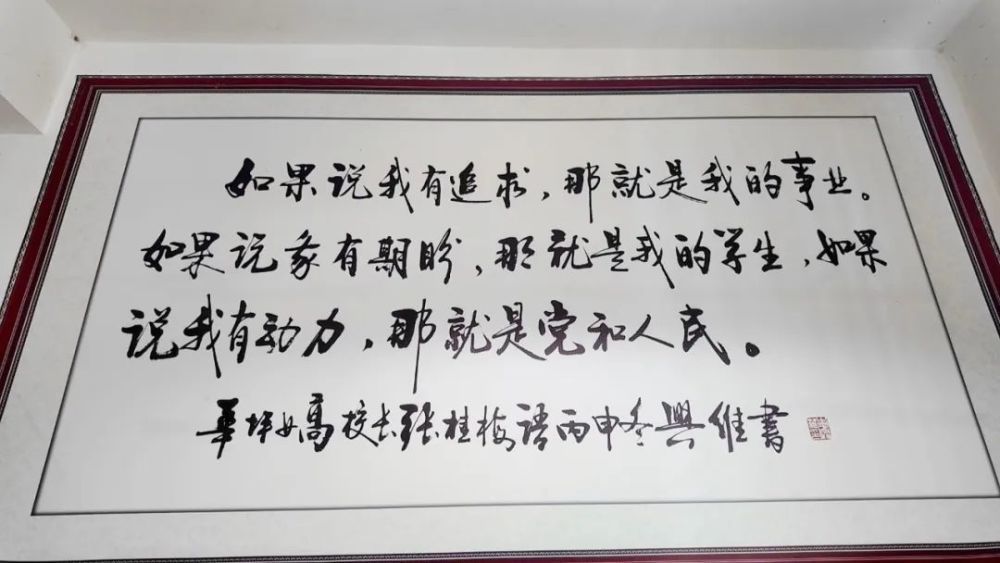 如果说我有追求，那就是我的事业。
如果说我有期盼，那就是我的学生，如果
说我有动力，那就是党和人民。
華坪女高校长张桂梅语丙申冬興維書